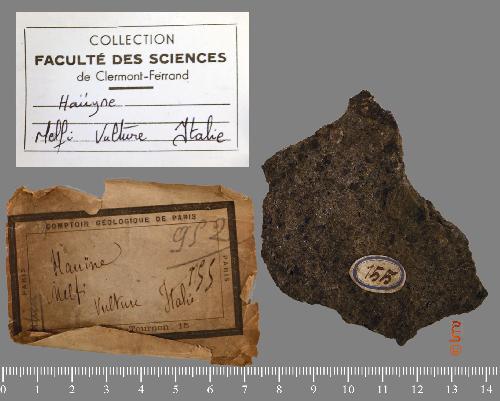 COLLECTION
FACULTÉ DES SCIENCES
de Clermont-Ferrand
Haüyne
Melfi Vulture Italie
COMPTOIR GÉOLOGIQUE DE PARIS
952
PARIS
PARIS
Hauine
Melfi
Vulture Italie
Tournon, 15
1515
0 1 2 3 4 5 6 7 8 9 10 11 12 13 14